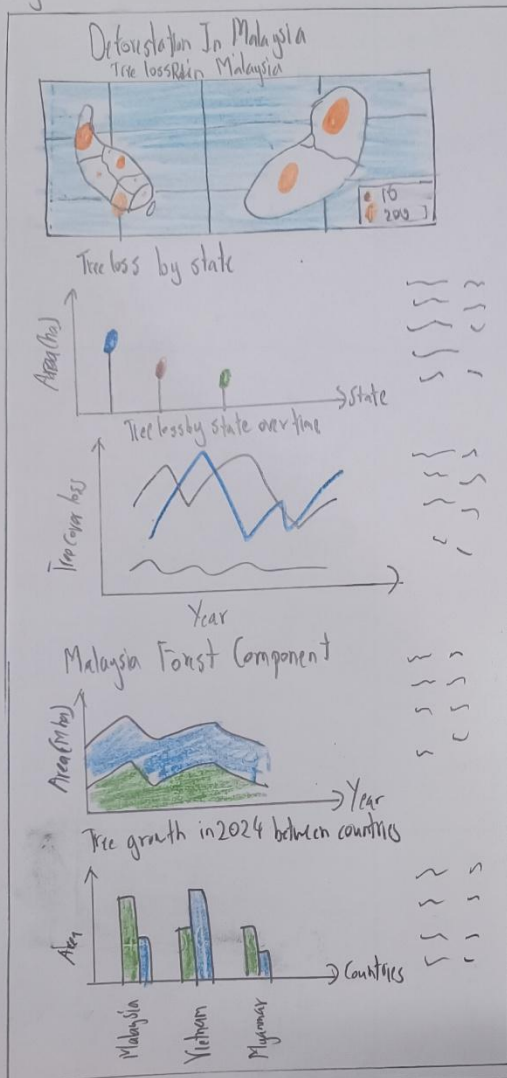 Deforestation In Malaysia
Tree loss in Malaysia
10
200
Tree loss by state
Area (ha)
State
Tree loss by state over time
Tree cover loss
Year
Malaysia Forest Component
Area (M ha)
Year
Tree growth in 2024 between countries
Area
Countries
Malaysia
Vietnam
Myanmar